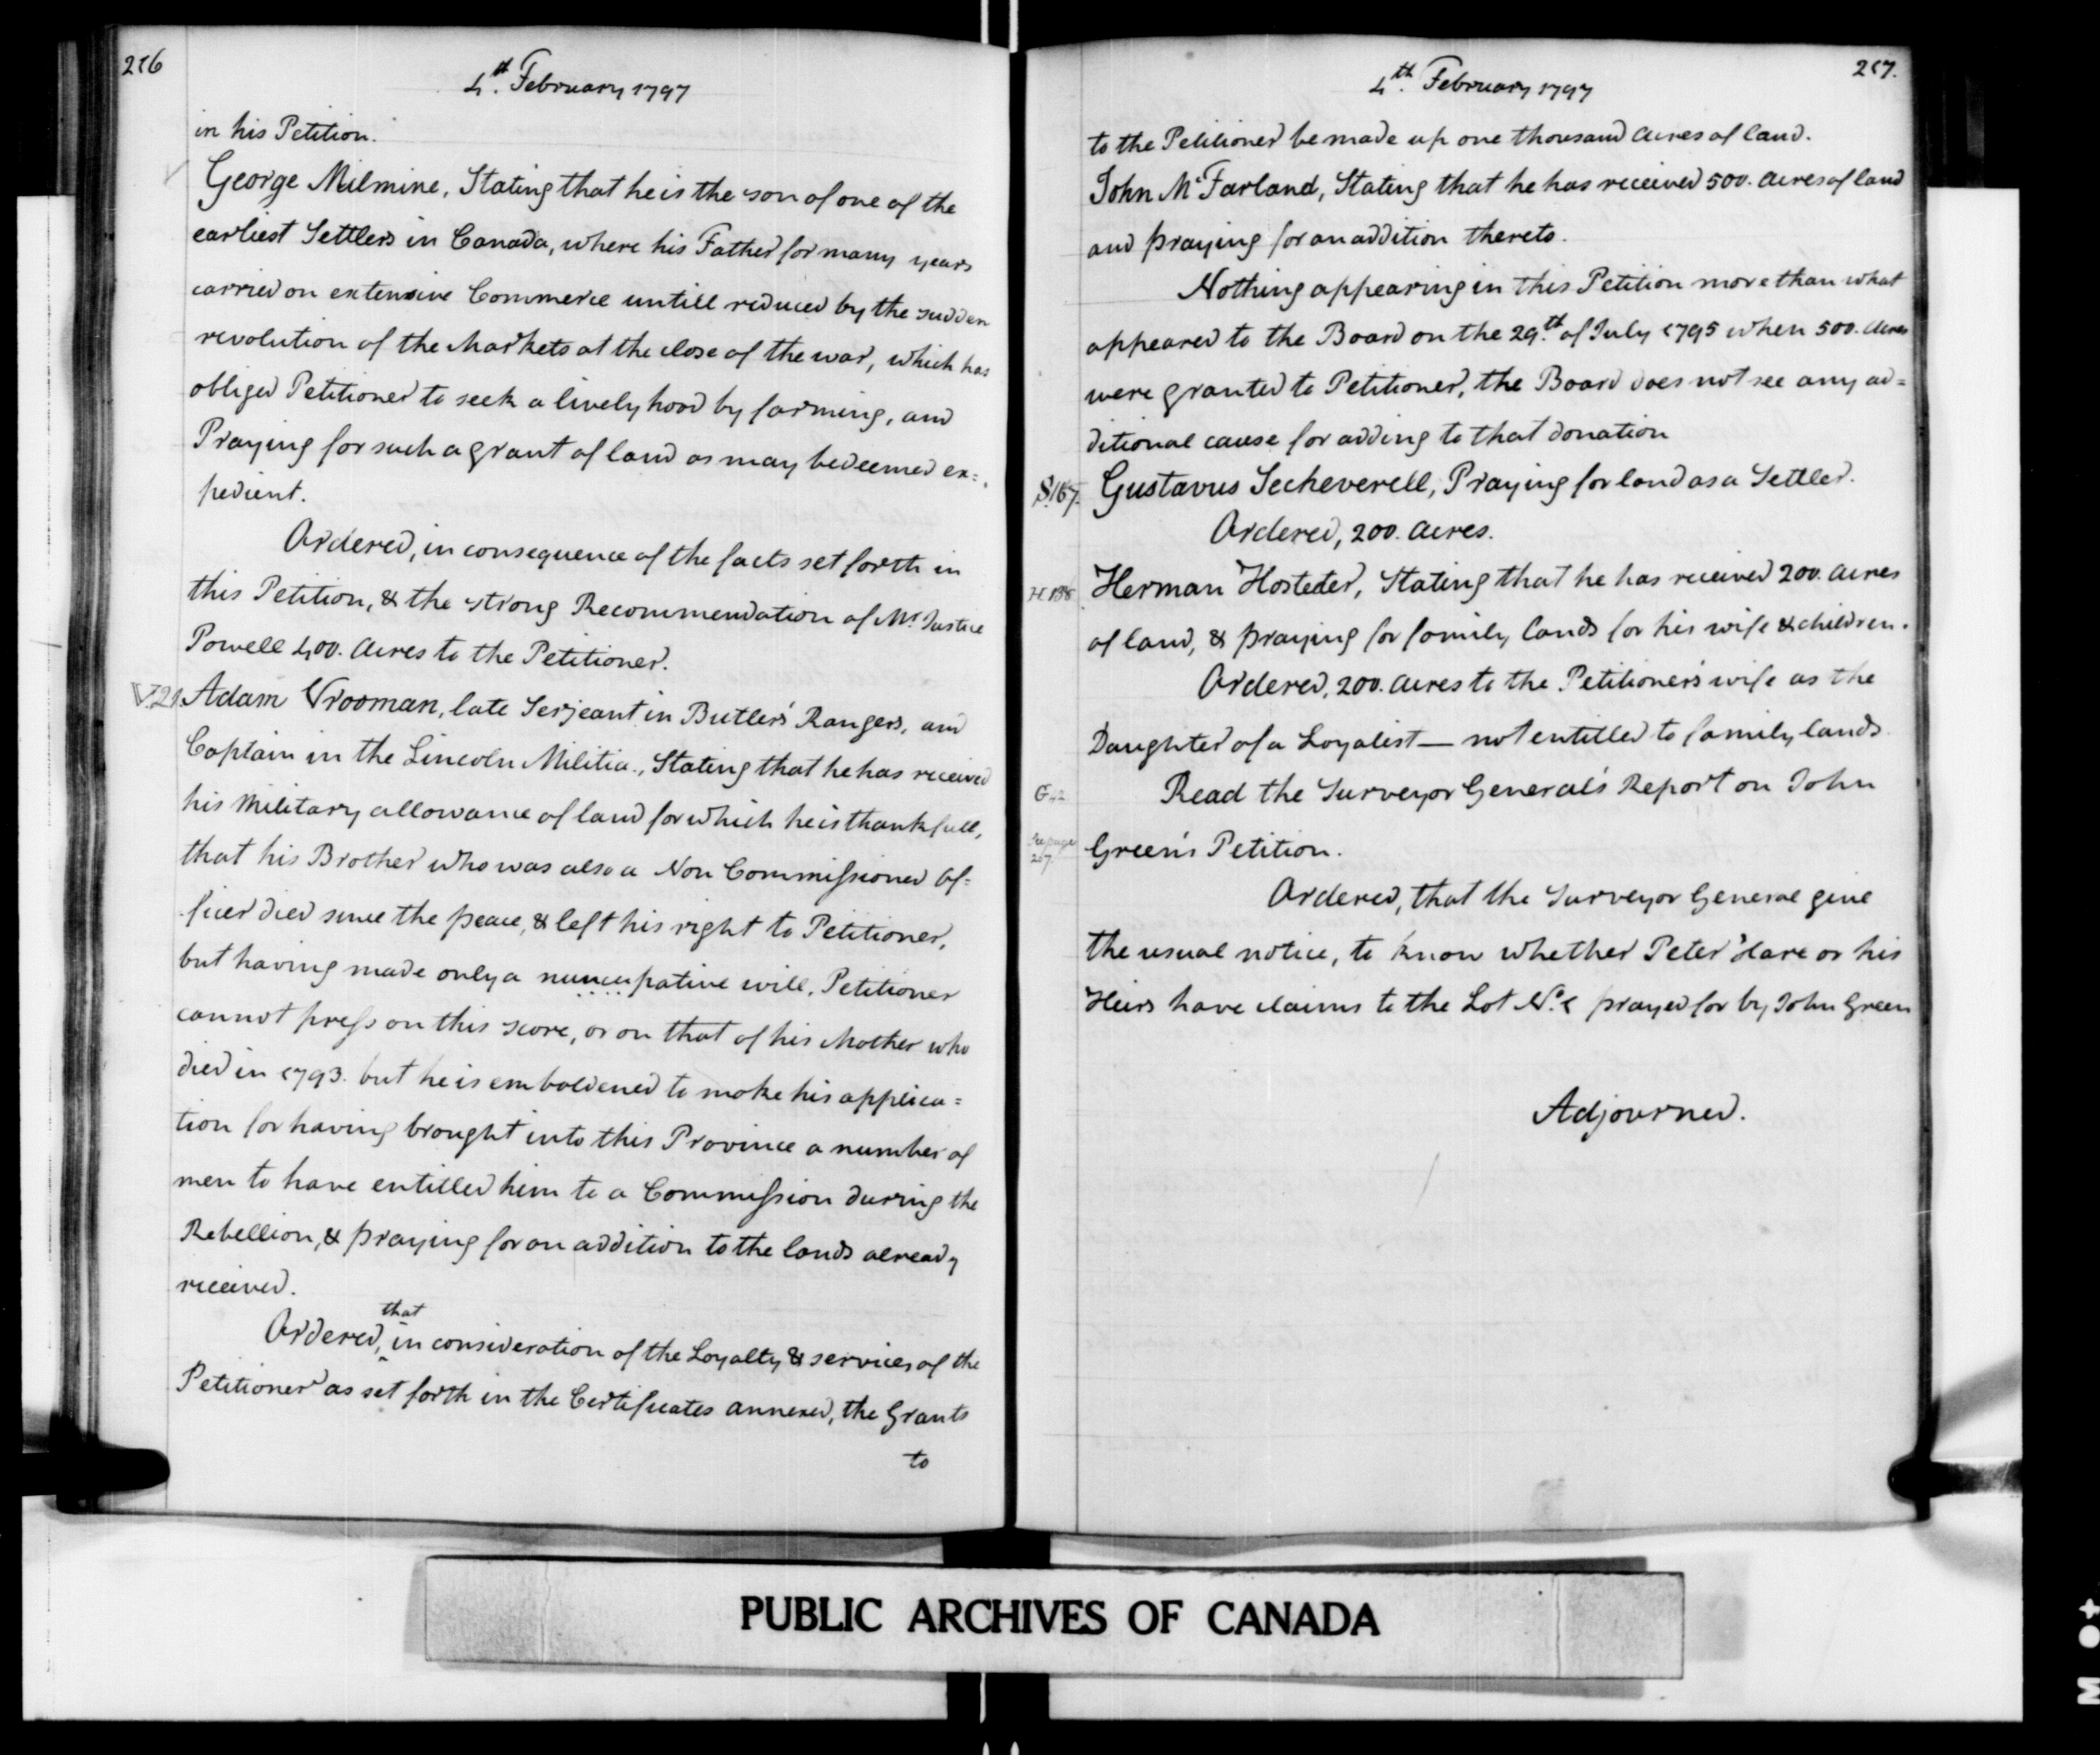 216
4th. February 1797
in his Petition.
George Milmine, Stating that he is the son of one of the
earliest Settlers in Canada, where his Father for many years
carried on extensive Commerce untill reduced by the sudden
revolution of the Markets at the close of the war, which has
obliged Petitioner to seek a livelyhood by farming, and
Praying for such a grant of land as may be deemed ex=
pedient.
Ordered, in consequence of the facts set forth in
this Petition, & the strong Recommendation of Mr. Justice
Powell 400. Acres to the Petitioner.
V.21. Adam Vrooman, late Serjeant in Butler's Rangers, and
Captain in the Lincoln Militia., Stating that he has received
his Military allowance of land for which he is thankfull,
that his Brother who was also a Non Commissioned Of=
ficer died since the peace, & left his right to Petitioner,
but having made only a nuncupative will, Petitioner
cannot press on this score, or on that of his Mother who
died in 1793. but he is emboldened to make his applica=
tion for having brought into this Province a number of
men to have entitled him to a Commission during the
Rebellion, & praying for an addition to the lands already
received.
that
Ordered, in consideration of the Loyalty & services of the
Petitioner as set forth in the Certificates annexed, the Grants
to
217.
4th. February 1797
to the Petitioner be made up one thousand Acres of land.
John McFarland, Stating that he has received 500. Acres of land
and praying for an addition thereto.
Nothing appearing in this Petition more than what
appeared to the Board on the 29th. of July 1795 when 500. Acres
were granted to Petitioner, the Board does not see any ad=
ditional cause for adding to that donation
S.167. Gustavus Secheverell, Praying for land as a Settler.
Ordered, 200. Acres.
Herman Hosteder, Stating that he has received 200. Acres
of land, & praying for family lands for his wife & children.
Ordered, 200. Acres to the Petitioner's wife as the
Daughter of a Loyalist — not entitled to family lands.
Read the Surveyor General's Report on John
See page
Green's Petition.
Ordered, that the Surveyor General give
the usual notice, to know whether Peter Hare or his
Heirs have claims to the Lot No. 1 prayed for by John Green
Adjourned.
PUBLIC ARCHIVES OF CANADA